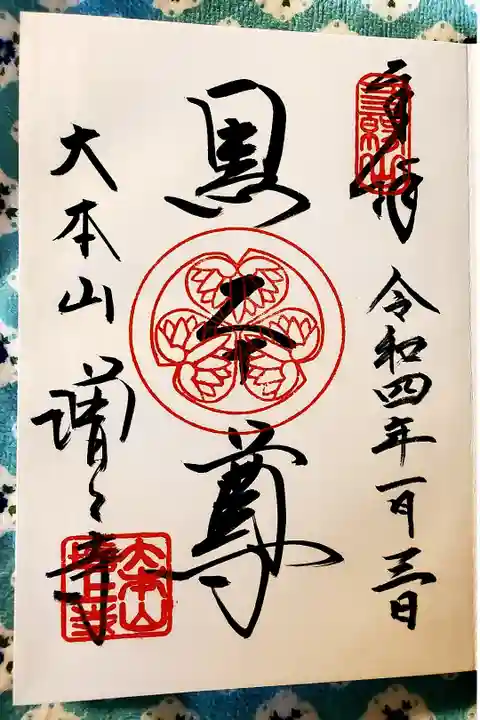 奉拝 令和四年一月三日
三縁山
黒本尊
大本山 増上寺
大本山
増上寺